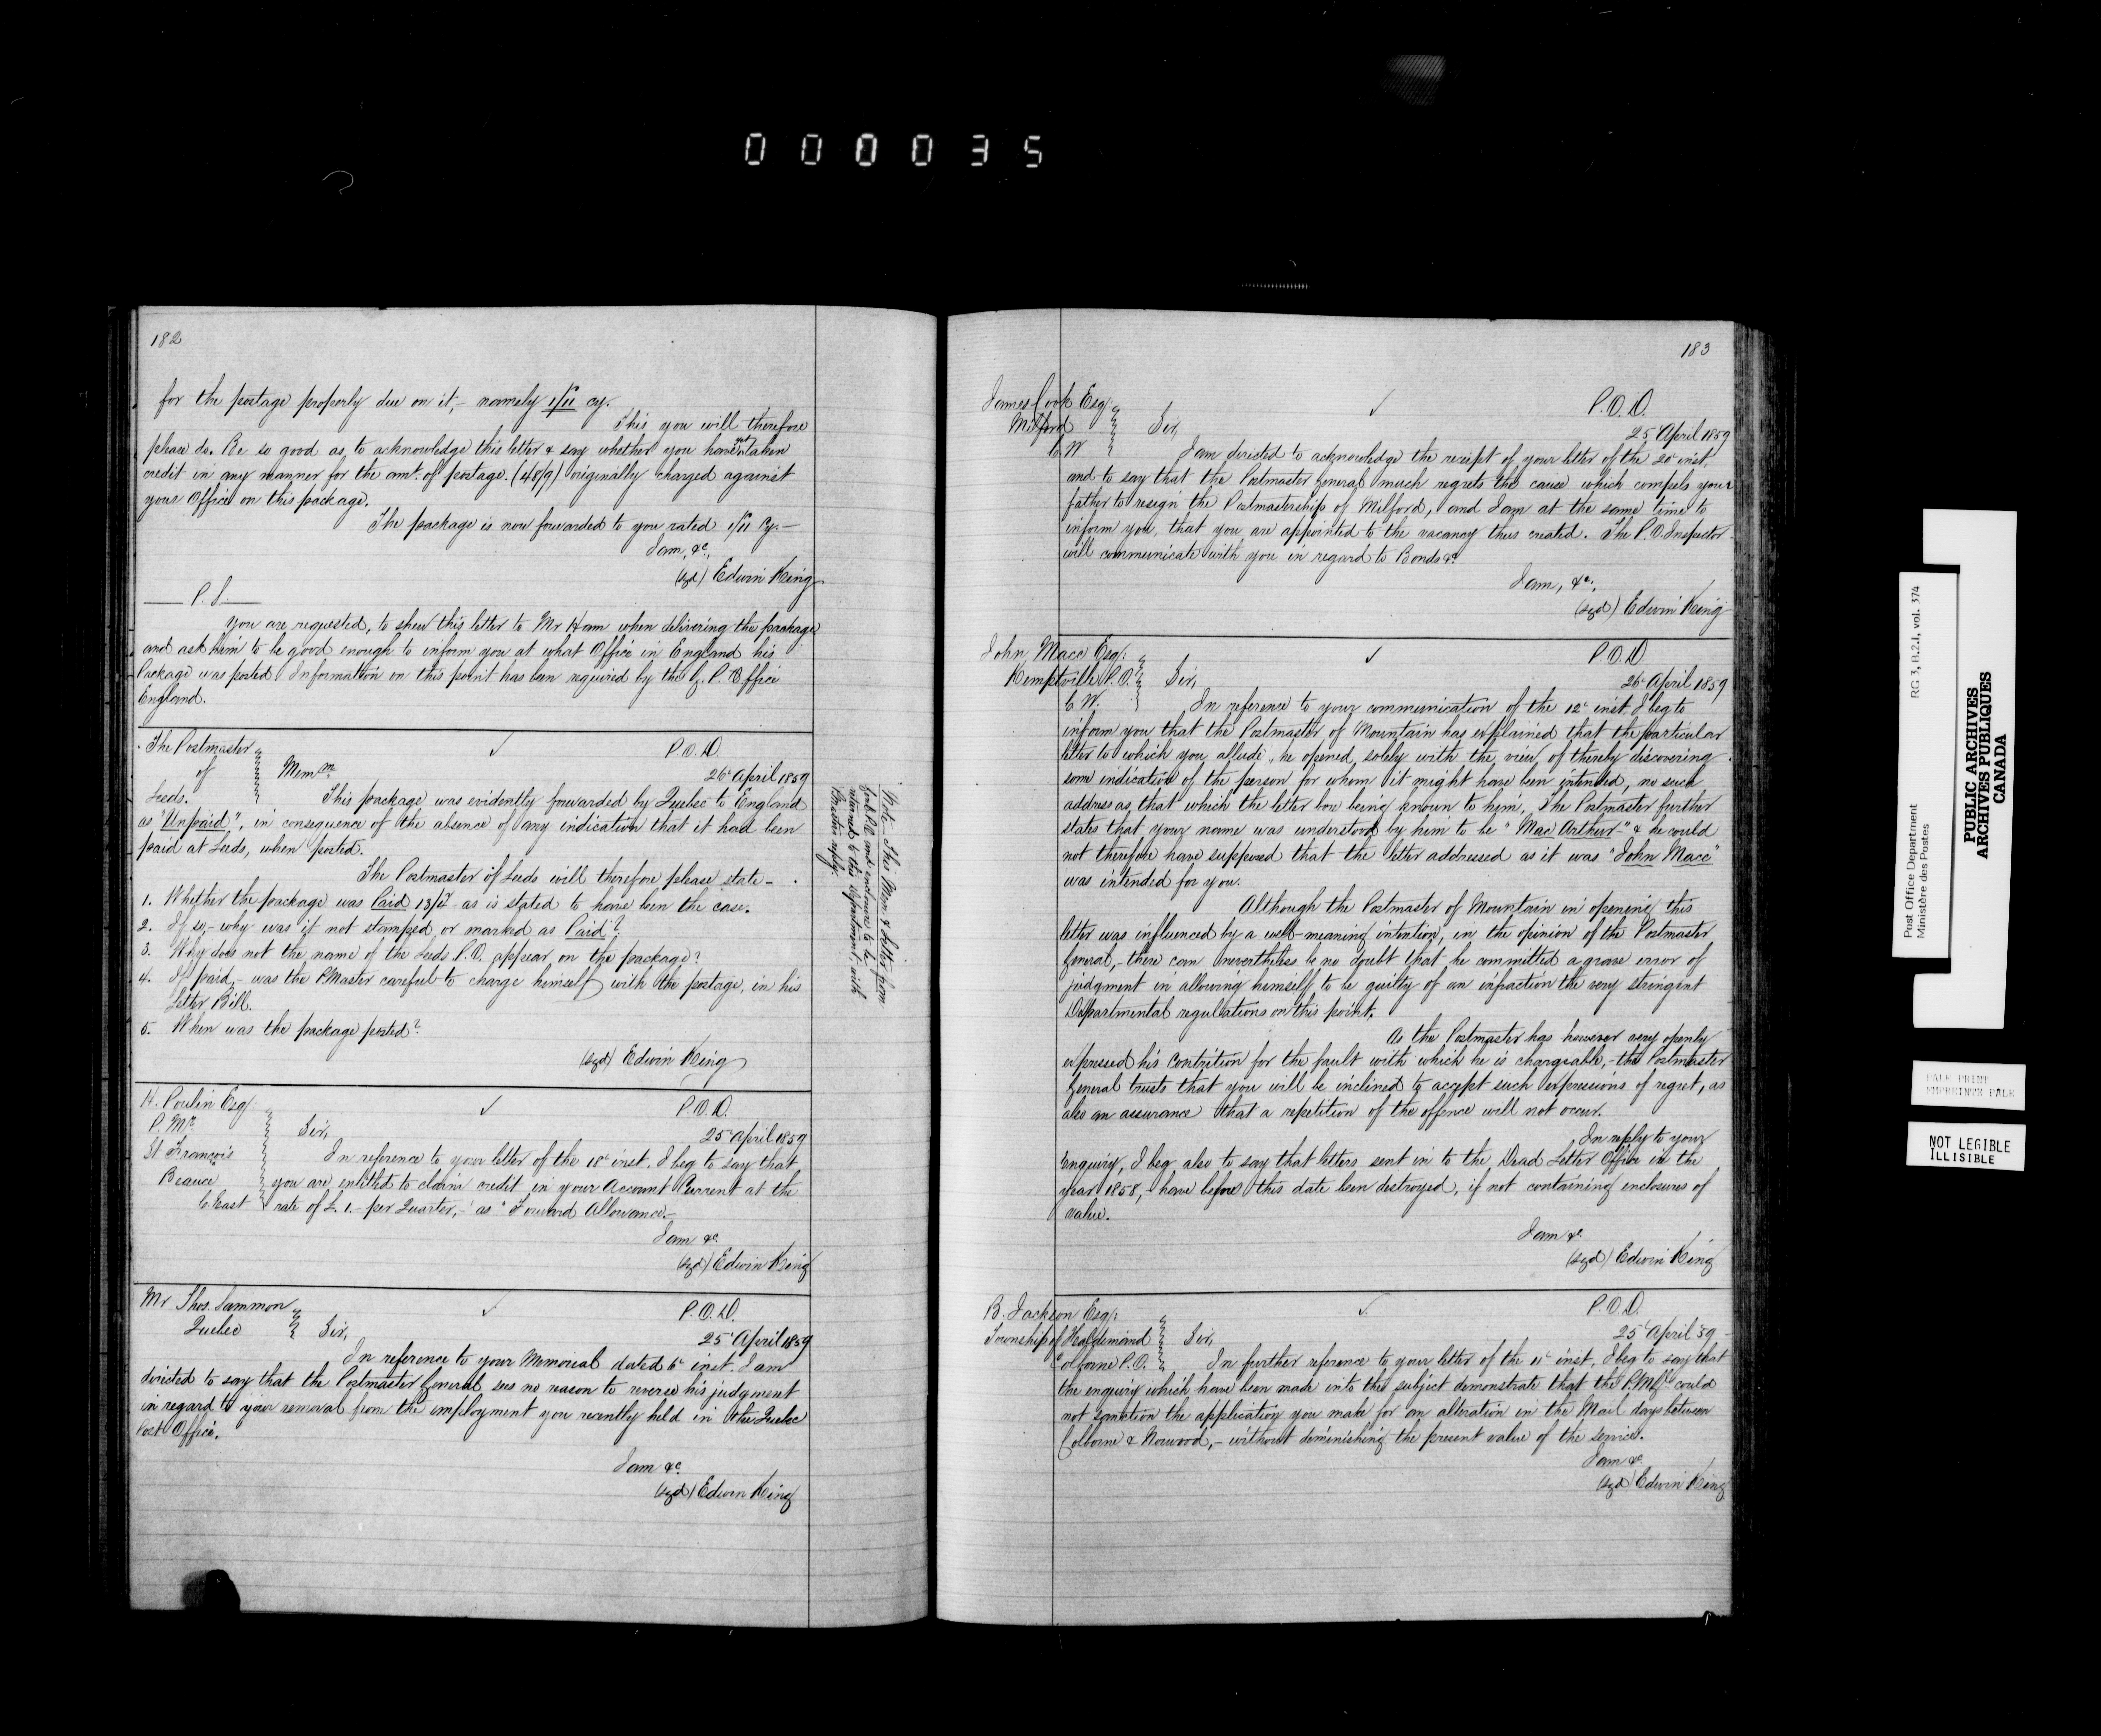 000035
182
for the postage properly due on it, - namely 1/11 cy.
This you will therefore
please do. Be so good as to acknowledge this letter & say whether you have not taken
credit in any manner for the amt. of postage. (48/9) originally charged against
your Office on this package.
The package is now forwarded to you rated 1/11 Cy. -
I am, &c.,
(sgd) Edwin King
P.S.
You are requested, to shew this letter to Mr Ham when delivering the package
and ask him to be good enough to inform you at what Office in England his
Package was posted. Information on this point has been required by the G. P. Office
England.
The Postmaster
of
Leeds.
P.O.D.
26 April 1859
Memm
This package was evidently forwarded by Quebec to England
as "Unpaid", in consequence of the absence of any indication that it had been
paid at Leeds, when posted.
The Postmaster of Leeds will therefore please state -
1. Whether the package was Paid as is stated to have been the case.
2. If so, - why was it not stamped or marked as Paid?
3. Why does not the name of the Leeds P.O. appear on the package?
4. If paid, - was the P.Master careful to charge himself with the postage, in his
Letter Bill.
5. When was the package posted?
(sgd) Edwin King
Note - This Mem & letter from
and enclosures to be
returned to this Department with
Pmaster's reply.
H. Poulin Esq.
P. Mr.
St François
Beauce
C. East
P.O.D.
25 April 1859
Sir,
In reference to your letter of the 18 inst. I beg to say that
you are entitled to claim credit in your Account Current at the
rate of £1. - per Quarter, - as "Forward Allowance. -
I am &c.
(sgd) Edwin King
Mr Thos. Sammon
Quebec
P.O.D.
25 April 1859
Sir,
In reference to your Memorial dated 6 inst. I am
directed to say that the Postmaster General sees no reason to reverse his judgment
in regard to your removal from the employment you recently held in the Quebec
Post Office.
I am &c.
(sgd) Edwin King
183
James Cook Esq.
Milford
C W
P.O.D.
25 April 1859
Sir,
I am directed to acknowledge the receipt of your letter of the 20 inst.
and to say that the Postmaster General much regrets the cause which compels your
father to resign the Postmastership of Milford, and I am at the same time to
inform you, that you are appointed to the vacancy thus created. The P.O. Inspector
will communicate with you in regard to Bonds &c.
I am, &c.
(sgd) Edwin King
John Macc Esq.
Kemptville P.O.
C W.
P.O.D.
26 April 1859
Sir,
In reference to your communication of the 12 inst. I beg to
inform you that the Postmaster of Mountain has explained that the particular
letter to which you allude, he opened, solely with the view, of thereby discovering
some indication of the person for whom it might have been intended, no such
address as that which the letter bore being known to him. The Postmaster further
states that your name was understood by him to be "Mac Arthur -" & he could
not therefore have supposed that the letter addressed as it was "John Macc"
was intended for you.
Although the Postmaster of Mountain in opening this
letter was influenced by a well-meaning intention, in the opinion of the Postmaster
General, - there can nevertheless be no doubt that he committed a grave error of
judgment in allowing himself to be guilty of an infraction the very stringent
Departmental regulations on this point.
As the Postmaster has however very openly
expressed his contrition for the fault with which he is chargeable, - the Postmaster
General trusts that you will be inclined to accept such expressions of regret, as
also an assurance that a repetition of the offence will not occur.
In reply to your
enquiry, I beg also to say that letters sent in to the Dead Letter Office in the
year 1858, - have before this date been destroyed, if not containing enclosures of
value.
I am &c.
(sgd) Edwin King
B. Jackson Esq.
Township of Haldimand
Colborne P.O.
P.O.D.
25 April '59
Sir,
In further reference to your letter of the 11 inst, I beg to say that
the enquiry which have been made into the subject demonstrate that the P.M.Gl. could
not sanction the application you make for an alteration in the Mail days between
Colborne & Norwood, - without diminishing the present value of the service.
I am &c.
(sgd) Edwin King
Post Office Department
Ministère des Postes
RG 3, B.2.1, vol. 374
PUBLIC ARCHIVES
ARCHIVES PUBLIQUES
CANADA
PALE PRINT
NOT LEGIBLE
ILLISIBLE